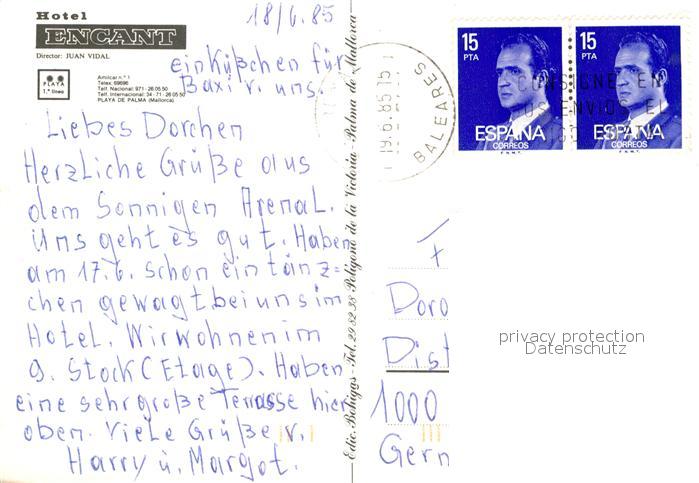 Hotel
ENCANT
Director: JUAN VIDAL
PLAYA
1.ª línea
Amilcar n.º 1
Telex: 69696
Telf. Nacional: 971 - 26 05 50
Telf. Internacional: 34 - 71 - 26 05 50
PLAYA DE PALMA (Mallorca)
18/6.85
ein Küßchen für
Baxi v. uns.
Liebes Dorchen
Herzliche Grüße aus
dem Sonnigen Arenal.
Uns geht es gut. Haben
am 17.6. schon ein tänz=
chen gewagt bei uns im
Hotel. Wir wohnen im
9. Stock (Etage). Haben
eine sehr große Terrasse hier
oben. Viele Grüße v.
Harry u. Margot.
Edic. Bohigas - Tel. 22 82 38 Poligono de la Victoria - Palma de Mallorca
19.6.85.15
BALEARES
CONSIGNE EN
SUS ENVIOS EL
15
PTA
ESPAÑA
CORREOS
F.N.M.T.
15
PTA
ESPAÑA
CORREOS
F.N.M.T.
F
Doro
Dist
1000
Gern
privacy protection
Datenschutz